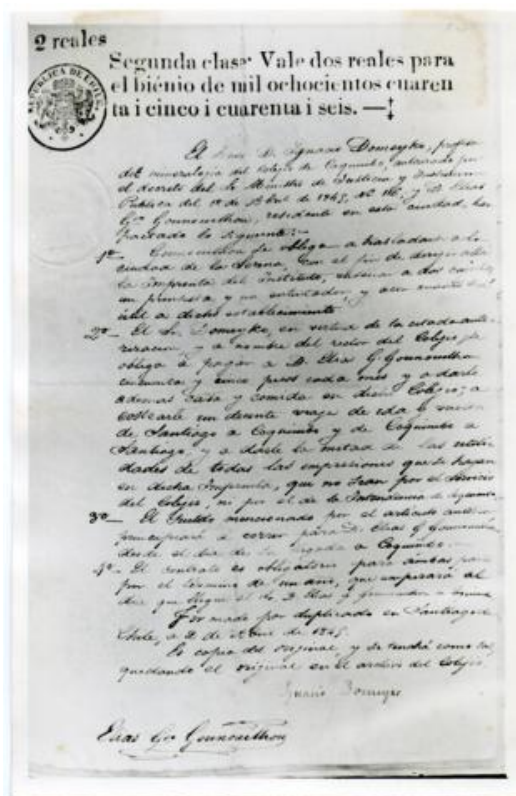 2 reales
Segunda clase Vale dos reales para
el biénio de mil ochocientos cuaren
ta i cinco i cuarenta i seis. —
REPUBLICA DE CHILE
El Señor D. Ignacio Domeyko, profesor
de mineralogía del Colegio de Coquimbo, autorizado por
el decreto del Sr Ministro de Justicia y Instrucción
Publica del 1º de de 1845, Nº y D. Elias
Gn Gonnouilhou, residente en esta ciudad, han
pactado lo siguiente:—
1º— Gonnouilhou se obliga a trasladarse a la
ciudad de la Serena, con el fin de dirijir alla
la Imprenta del Instituto, enseñar a dos
un prensista y un
util a dicho establecimiento
2º— El Sr Domeyko, en virtud de la citada auto-
rizacion, y a nombre del rector del Colegio se
obliga a pagar a D. Elia G Gonnouilhou
cincuenta y cinco pesos cada mes y a darle
ademas casa y comida en dicho Colegio; a
costearle un decente viaje de ida y
de Santiago a Coquimbo y de Coquimbo a
Santiago, y a darle la mitad de las utili-
dades de todas las impresiones que se hagan
en dicha Imprenta, que no sean por el Servicio
del Colegio, ni por el de la Intendencia de
3º— El Sueldo mencionado por el articulo
principiará a correr para D. Elias G Gonnouilhou
desde el dia de su llegada a Coquimbo.—
4º— El contrato es obligatorio para ambas
por el término de un año, que espirará al
dia que llegue el Sr D Elias G Gonnouilhou a
Firmado por duplicado en Santiago de
Chile, a 2 de de 1845.
Es copia del original, y se tendrá como tal
quedando el original en el archivo del Colegio
Ignacio Domeyko
Elias Gn Gonnouilhou